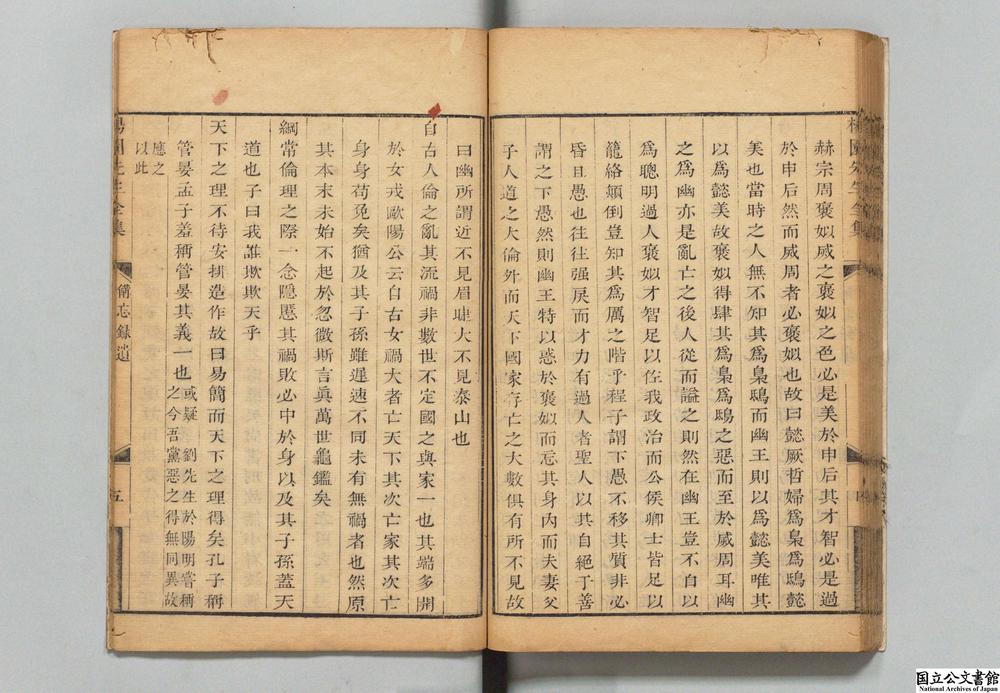 赫宗周褒姒烕之褒姒之色必是美於申后其才智必是過
於申后然而烕周者必褒姒也故曰懿厥哲婦爲梟爲鴟懿
美也當時之人無不知其爲梟鴟而幽王則以爲懿美唯其
以爲懿美故褒姒得肆其爲梟爲鴟之惡而至於烕周耳幽
之爲幽亦是亂亡之後人從而謚之則然在幽王豈不自以
爲聰明過人褒姒才智足以佐我政治而公侯卿士皆足以
籠絡顛倒豈知其爲厲之階乎程子謂下愚不移其質非必
昏且愚也往往强戾而才力有過人者聖人以其自絕于善
謂之下愚然則幽王特以惑於褒姒而忘其身內而夫妻父
子人道之大倫外而天下國家存亡之大數俱有所不見故
曰幽所謂近不見眉睫大不見泰山也
自古人倫之亂其流禍非數世不定國之與家一也其端多開
於女戎歐陽公云自古女禍大者亡天下其次亡家其次亡
身身苟免矣猶及其子孫雖遲速不同未有無禍者也然原
其本末未始不起於忽微斯言眞萬世龜鑑矣
綱常倫理之際一念隱慝其禍敗必中於身以及其子孫蓋天
道也子曰我誰欺欺天乎
天下之理不待安排造作故曰易簡而天下之理得矣孔子稱
管晏孟子羞稱管晏其義一也
或疑劉先生於陽明嘗稱
之今吾黨惡之得無同異故
應之
以此
楊園先生全集
備忘錄遺
五
国立公文書館
National Archives of Japan